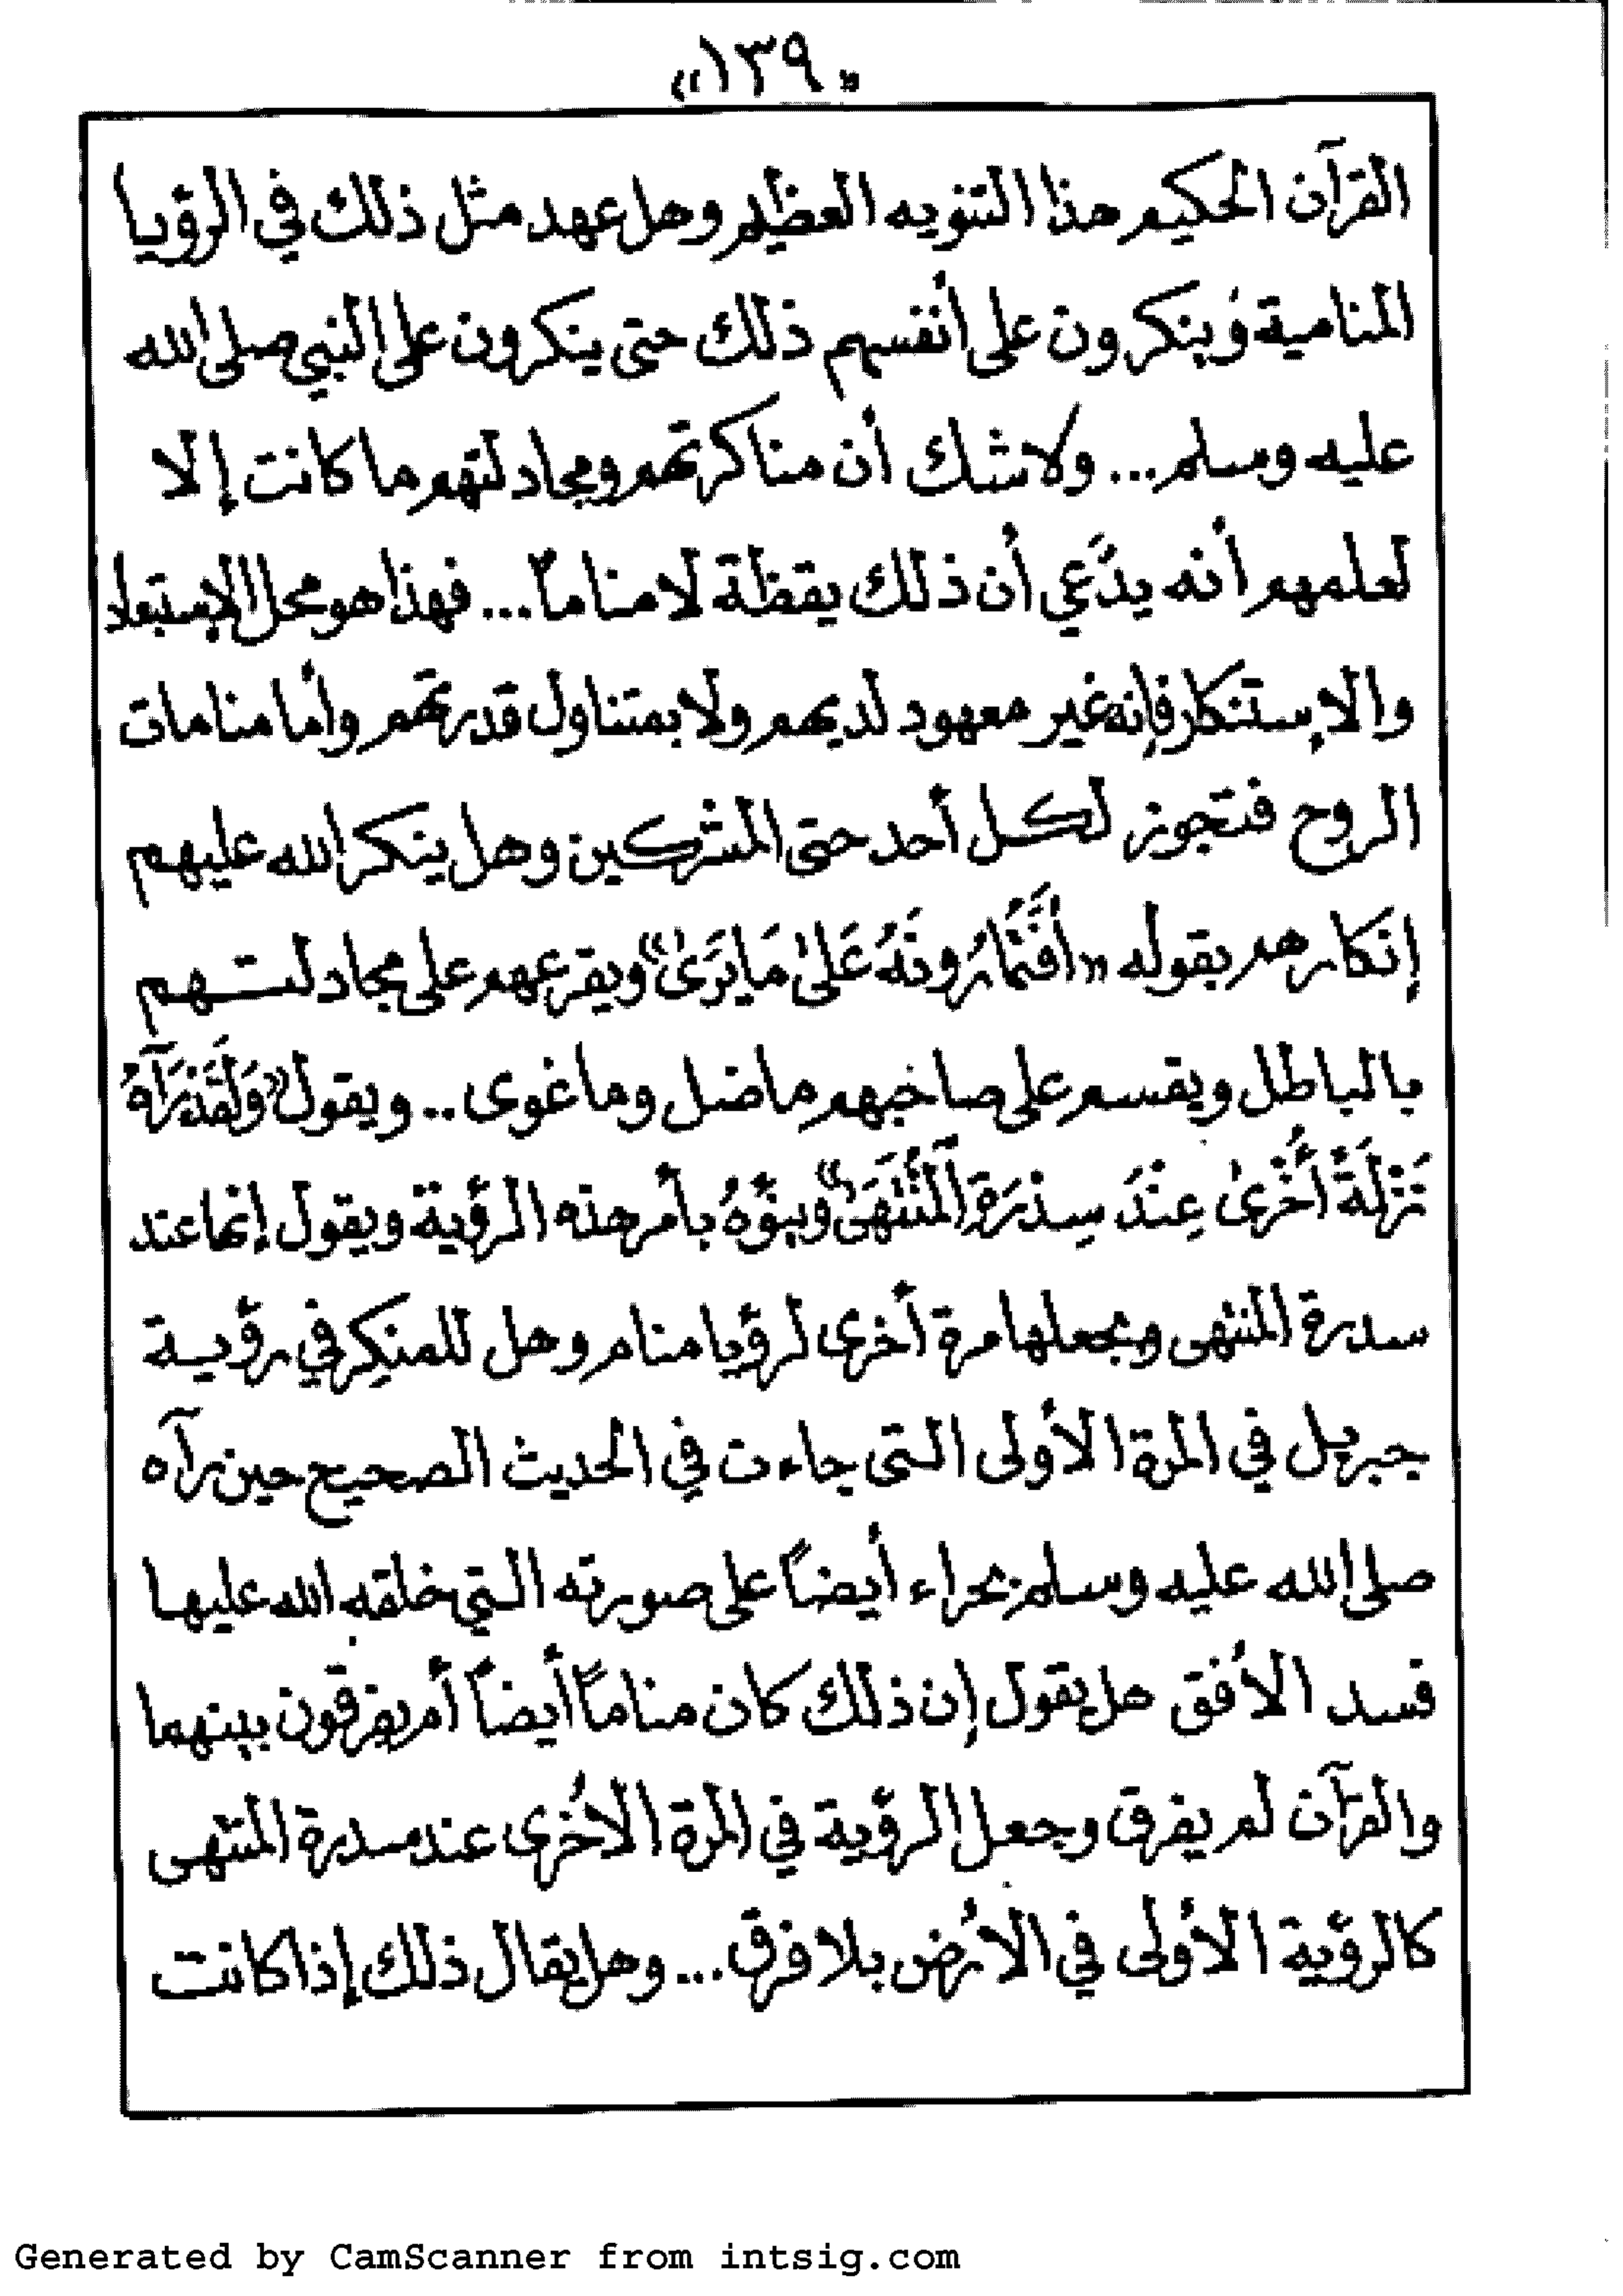 «١٣٩»
القرآن الحكيم هذا التنويه العظيم وهل عهد مثل ذلك في الرؤيا
المنامية وُينكرون على أنفسهم ذلك حتى ينكرون على النبي صلى الله
عليه وسلم... ولاشك أن مناكرتهم ومجادلتهم ما كانت إلا
لعلمهم أنه يدَّعي أن ذلك يقظة لا مناماً... فهذا هو محل الإستبعاد
والإستنكار فإنه غير معهود لديهم ولا بمتناول قدرتهم وأما منامات
الروح فتجوز لكل أحد حتى المشركين وهل ينكر الله عليهم
إنكارهم بقوله «أَفَتُمَارُونَهُ عَلَىٰ مَا يَرَىٰ» ويقرعهم على مجادلتهم
بالباطل ويقسم على صاحبهم ما ضل وما غوى.. ويقول «وَلَقَدْ رَآهُ
نَزْلَةً أُخْرَىٰ عِنْدَ سِدْرَةِ الْمُنْتَهَىٰ» وينوِّهُ بأمر هذه الرؤية ويقول إنما عند
سدرة المنتهى ويجعلها مرة أخرى لرؤيا منام وهل للمنكِر في رؤية
جبريل في المرة الأولى التى جاءت في الحديث الصحيح حين رآه
صلى الله عليه وسلم بحراء أيضاً على صورته التي خلقه الله عليها
فسد الأفق هل يقول إن ذلك كان مناماً أيضاً أم يفرقون بينهما
والقرآن لم يفرق وجعل الرؤية في المرة الأخرى عند سدرة المنتهى
كالرؤية الأولى في الأرض بلا فرق... وهل يقال ذلك إذا كانت
Generated by CamScanner from intsig.com